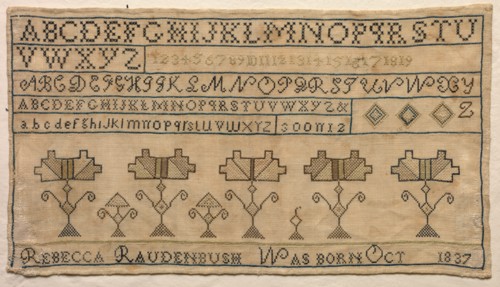 ABCDEFGHIJKLMNOPQRSTU
VWXYZ 12345678910111213141516171819
ABCDEFGHIJKLMNOPQRSTUVWXY
Z
ABCDEFGHIJKLMNOPQRSTUVWXYZ&
abcdefghijklmnopqrstuvwxyz
REBECCA RAUDENBUSH WAS BORN OCT 1837